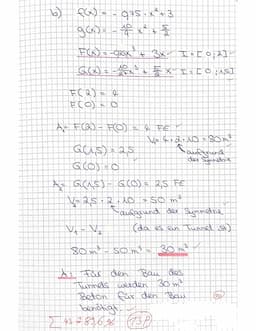 b) f(x) = - 0,75 · x² + 3
g(x) = - 10/9 x² + 5/2
F(x) = -0,25x³ + 3x I = [0;2]
G(x) = - 10/27 x³ + 5/2 x I = [0;1,5]
F(2) = 4
F(0) = 0
A₁ = F(2) - F(0) = 4 FE
V₁ = 4 · 2 · 10 = 80 m³
aufgrund der Symmetrie
G(1,5) = 2,5
G(0) = 0
A₂ = G(1,5) - G(0) = 2,5 FE
V₂ = 2,5 · 2 · 10 = 50 m³
aufgrund der Symmetrie
V₁ - V₂ (da es ein Tunnel ist)
80 m³ - 50 m³ = 30 m³
A.: Für den Bau des
Tunnels werden 30 m³
Beton für den Bau
benötigt.